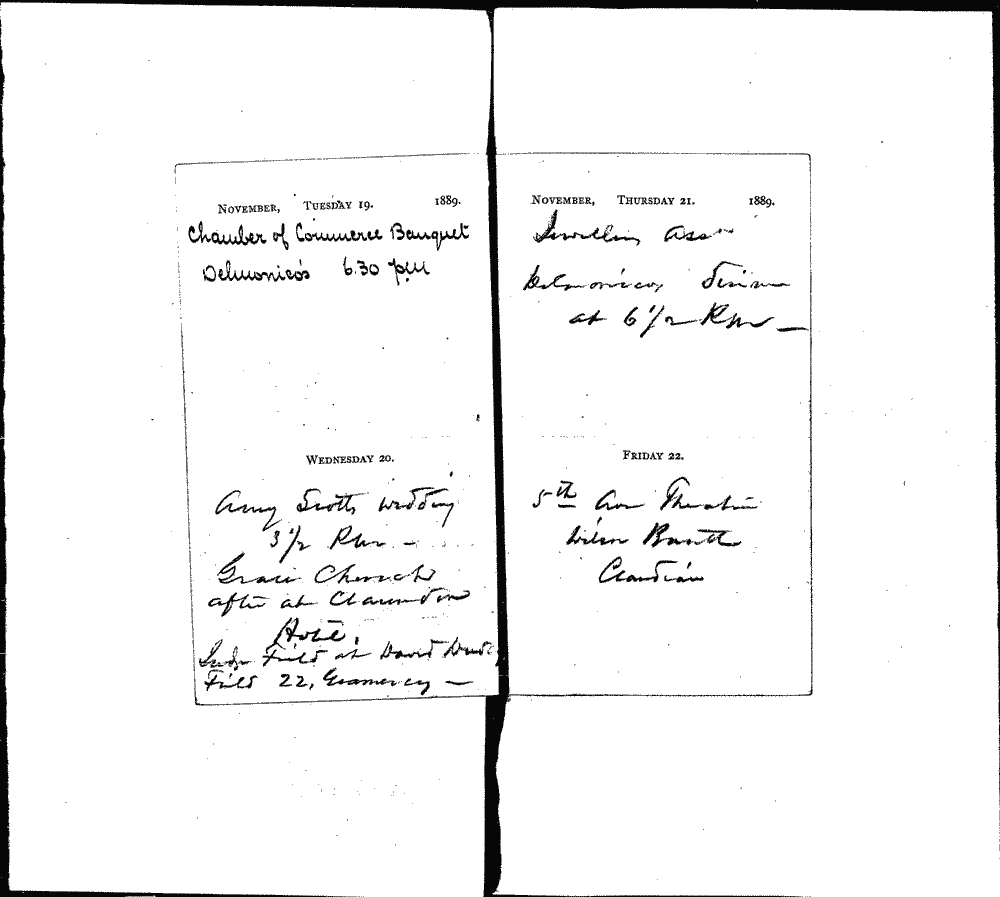 NOVEMBER, TUESDAY 19. 1889.
Chamber of Commerce Banquet
Delmonico's 6.30 p.m
WEDNESDAY 20.
Amy Scotts wedding
3 1/2 P.m –
Grace Church
after at Clarendon
Hotel,
Judge Field at David Dudley
Field 22, Gramercy –
NOVEMBER, THURSDAY 21. 1889.
Assn
Delmonicos, dinner
at 6 1/2 P.m –
FRIDAY 22.
5th Ave Theatre
Wilson Barrett
Claudian